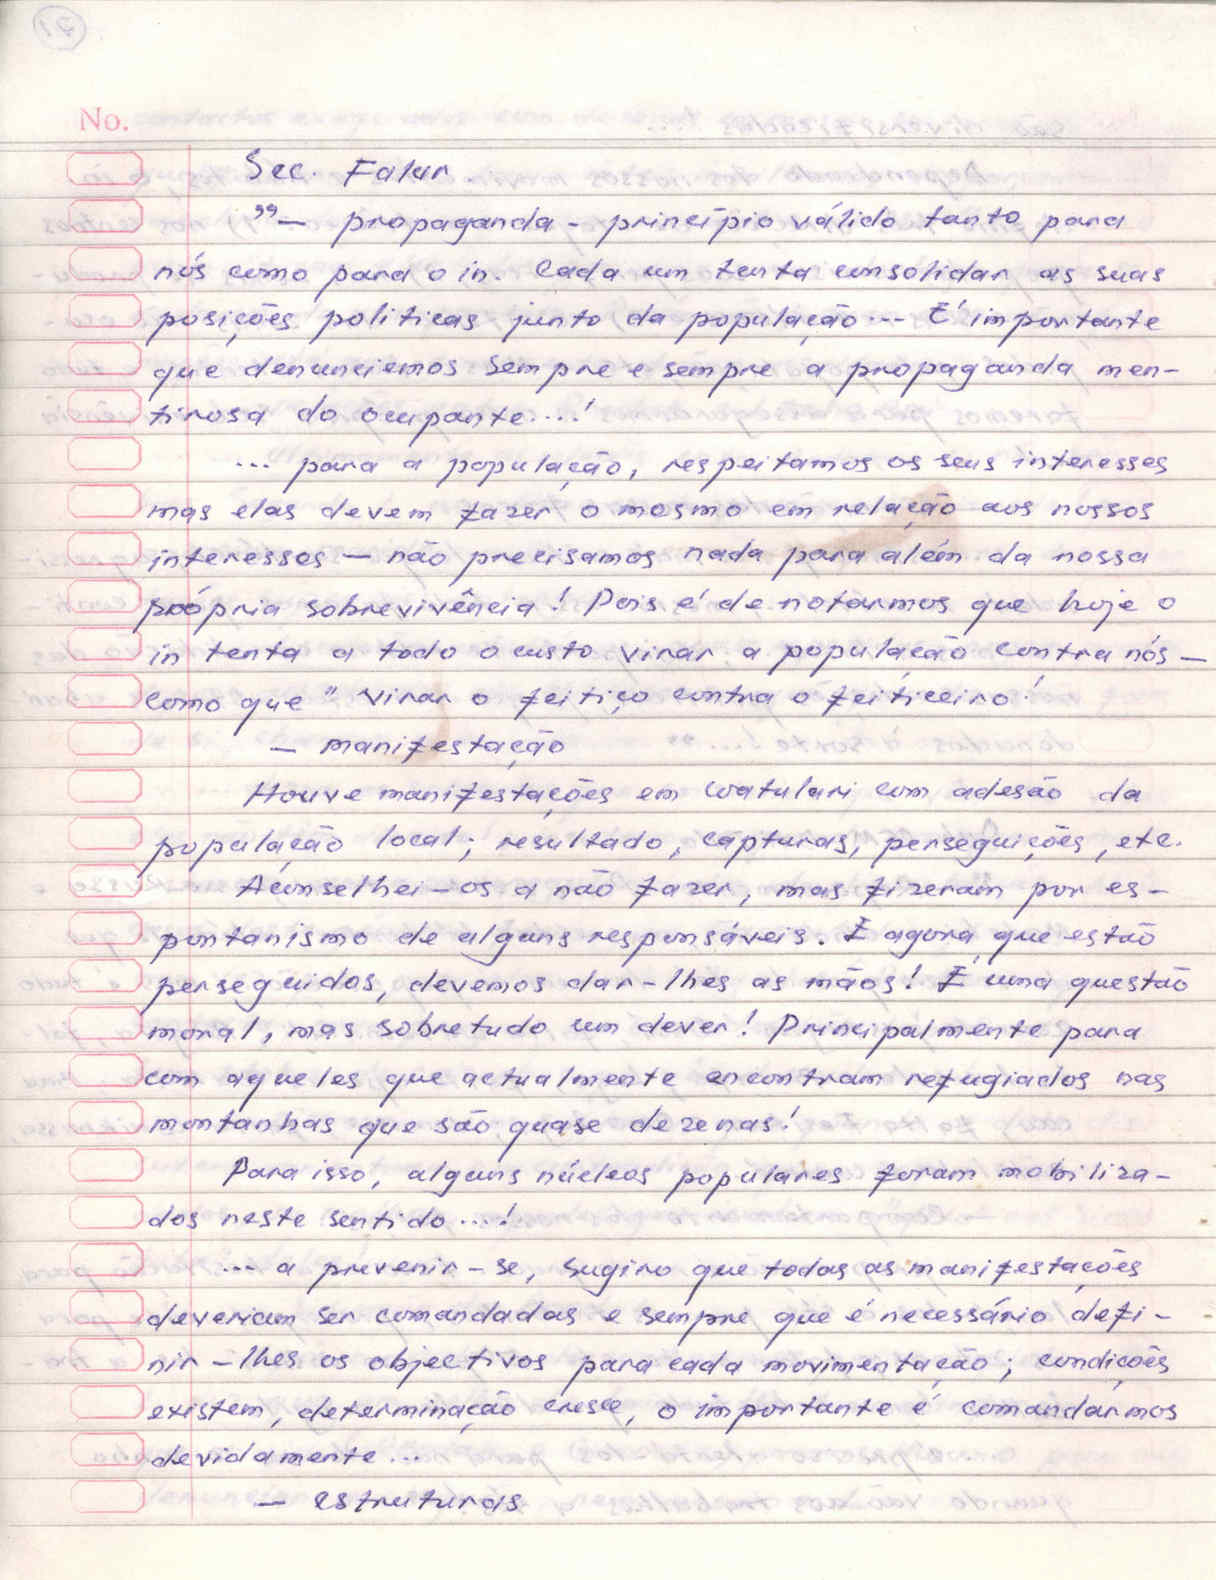 21
No.
Sec. Falur.
"— propaganda - princípio válido tanto para
nós como para o in. Cada um tenta consolidar as suas
posições políticas junto da população... É importante
que denunciemos sempre e sempre a propaganda men-
tirosa do ocupante...!
... para a população, respeitamos os seus interesses
mas elas devem fazer o mesmo em relação aos nossos
interesses — não precisamos nada para além da nossa
própria sobrevivência! Pois é de notarmos que hoje o
in tenta a todo o custo virar a população contra nós —
como que " virar o feitiço contra o feiticeiro!
— manifestação
Houve manifestações em Watulari com adesão da
população local; resultado, capturas, perseguições, etc.
Aconselhei-os a não fazer, mas fizeram por es-
pontanismo de alguns responsáveis. E agora que estão
perseguidos, devemos dar-lhes as mãos! É uma questão
moral, mas sobretudo um dever! Principalmente para
com aqueles que actualmente encontram refugiados nas
montanhas que são quase dezenas!
Para isso, alguns núcleos populares foram mobiliza-
dos neste sentido...!
... a prevenir-se, sugiro que todas as manifestações
deveriam ser comandadas e sempre que é necessário defi-
nir-lhes os objectivos para cada movimentação; condições
existem, determinação cresce, o importante é comandarmos
devidamente...
— estruturas